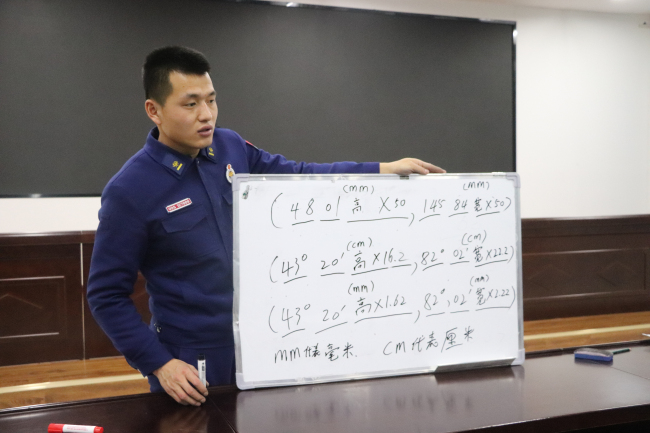 (mm) (mm)
(48 01 高 ×50, 145 84 宽×50)
(cm) (cm)
(43° 20′ 高×16.2, 82° 02′ 宽×22.2)
(mm) (mm)
(43° 20′ 高×1.62, 82° 02′ 宽×2.22)
mm代表毫米. cm代表厘米